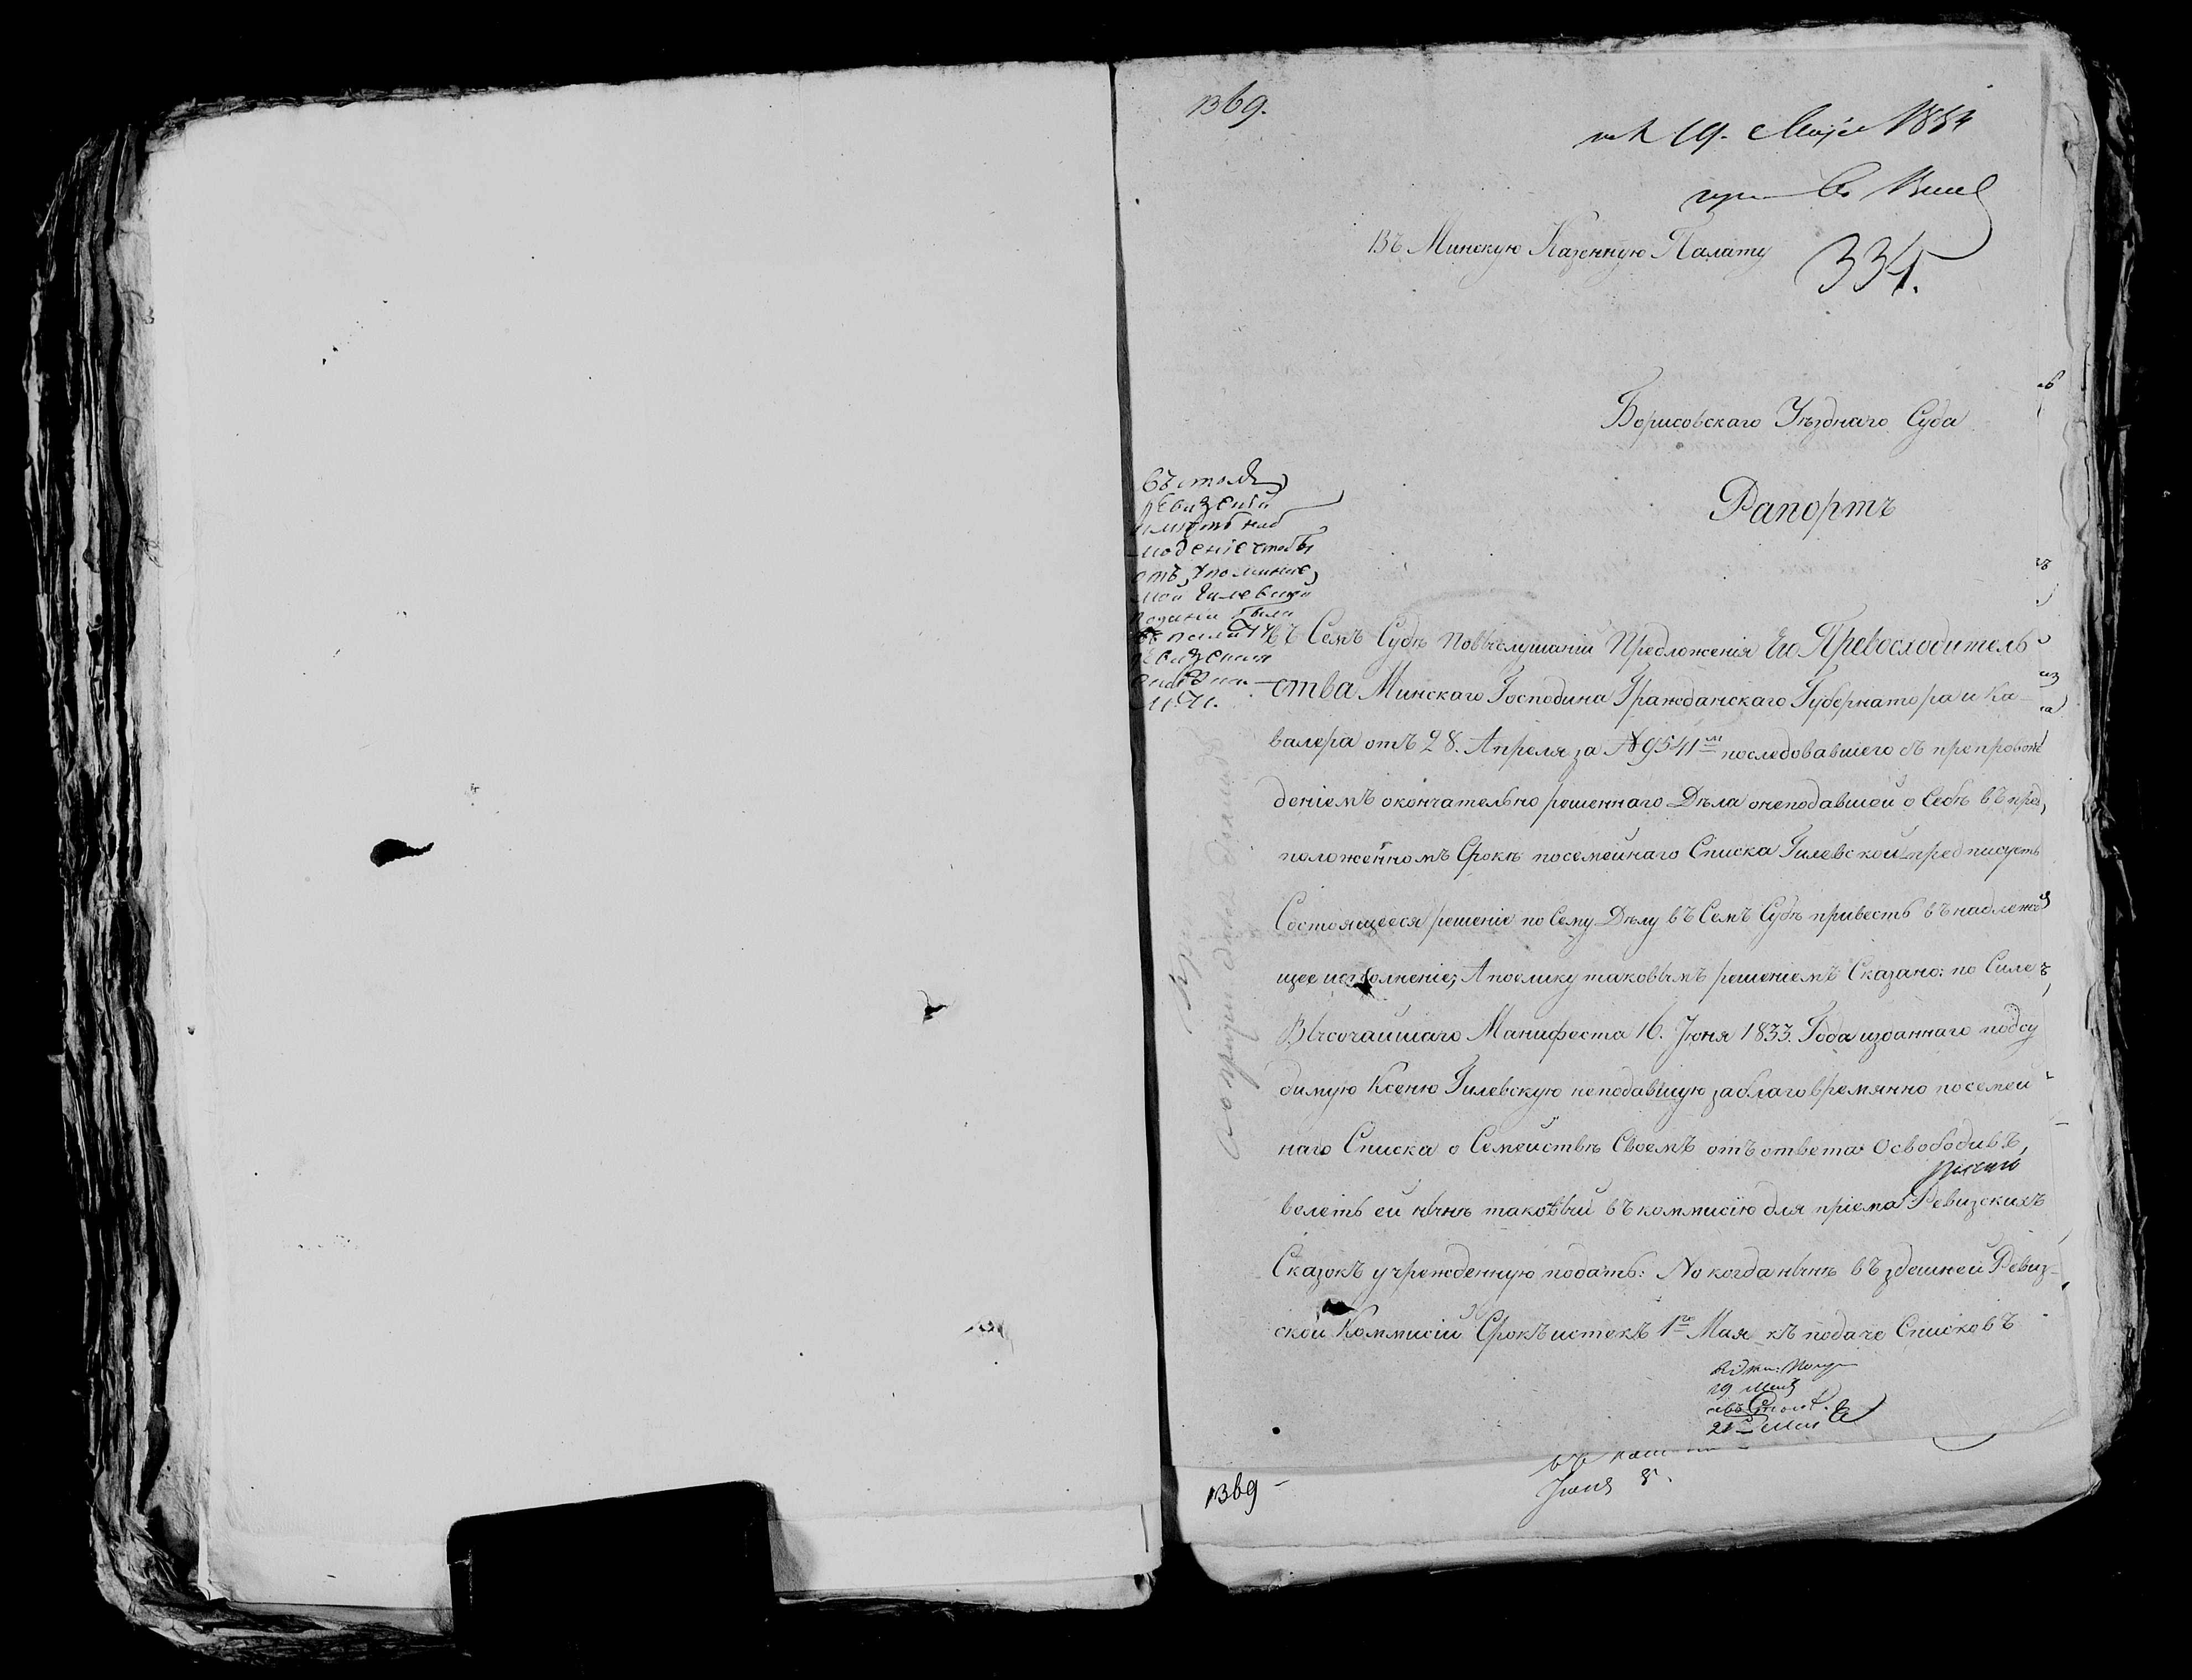 1369.
19. Мая 1834
334.
Въ Минскую Казенную Палату
Борисовскаго Уѣзднаго Суда
Рапортъ
въ столѣ
ревизскій
имѣть наб
люденіе чтобы
отъ упомяне
мой Гилевской
подани были
въ палату
ревизския
Въ Семъ Судѣ повыслушаніи Предложенія Его Превосходитель
ства Минскаго Господина Гражданскаго Губернатора и Ка-
валера отъ 28. Апреля за № 9541м последовавшего съ препровож
деніемъ окончательно решеннаго Дѣла онеподавшей о Себѣ въ пред
положенномъ Срокѣ посемейнаго Списка Гилевской предписуетъ
Состоящееся решеніе по Сему Дѣлу въ Семъ Судѣ привесть въ надлежа
щее исполненіе; А поелику таковымъ решеніемъ Сказано: по Силе
Высочайшаго Манифеста 16. Іюня 1833. Года изданнаго подсу
димую Ксеню Гилевскую неподавшую заблаговремянно посемей
наго Списка о Семействѣ Своемъ отъ ответа Освободивъ,
велеть ей нынѣ таковый въ коммисію для пріема Ревизскихъ
Сказокъ учрежденную подать: Но когда нынѣ въ здешней Ревиз-
ской Коммисіи Срокъ истекъ 1го Мая къ подаче Списковъ
19 Мая
21 Мая
1369
Іюня 8.